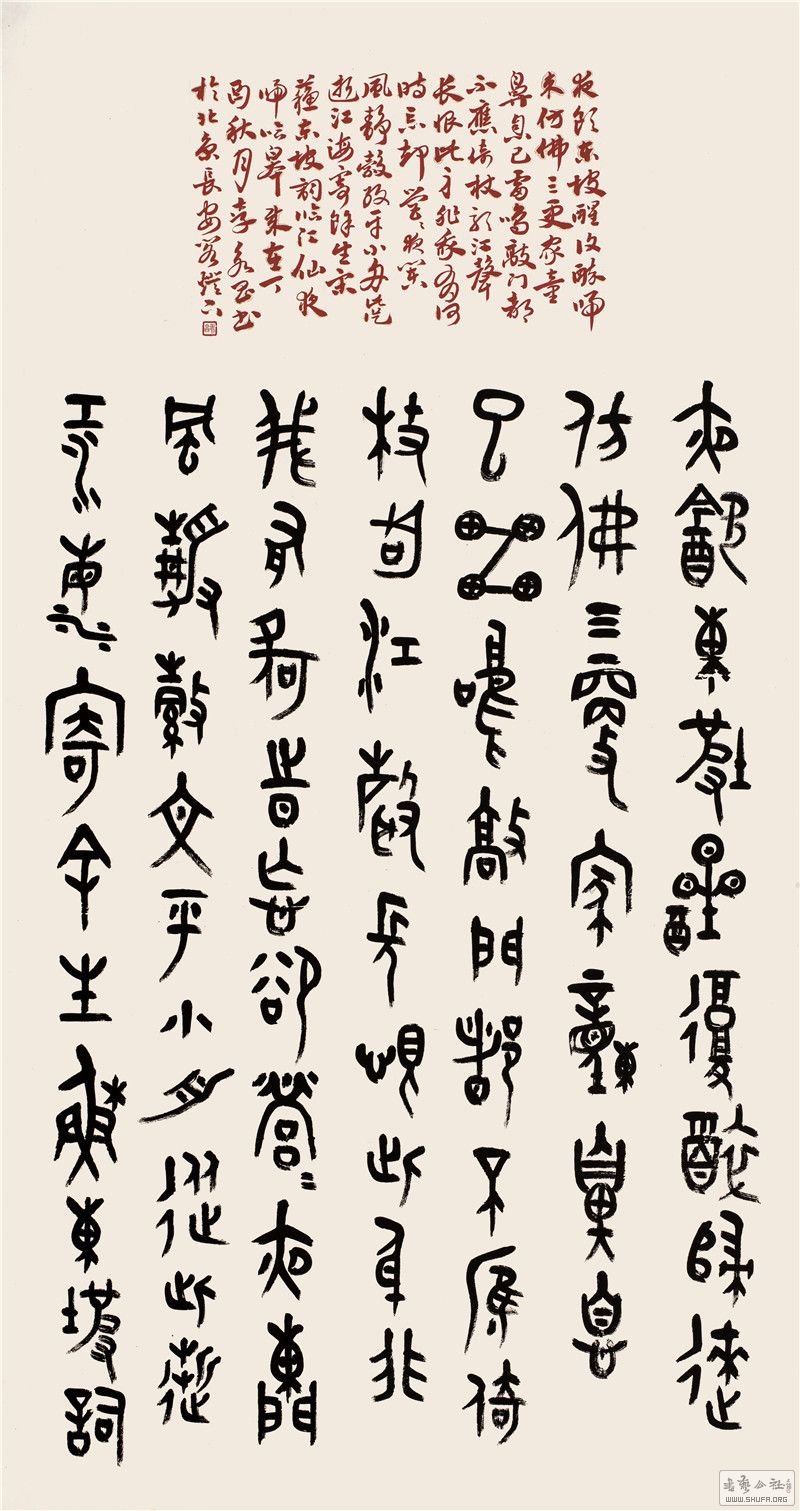 夜飲東坡醒復醉歸
來仿佛三更家童
鼻息已雷鳴敲門都
不應倚杖聽江聲
長恨此身非我有何
時忘却營々夜闌
風靜縠紋平小舟從
逝江海寄餘生宋
蘇東坡詞臨江仙夜
歸臨皋歲在丁
酉秋月李永
於北京長安客燈下
夜飲東坡醒復醉歸徠
仿佛三更家童鼻息
已雷鳴敲門都不應倚
杖聽江聲長恨此身非
我有何時忘卻營々夜闌
風靜縠文平小舟從此逝
江海寄余生蘇東坡詞
WWW.SHUFA.ORG